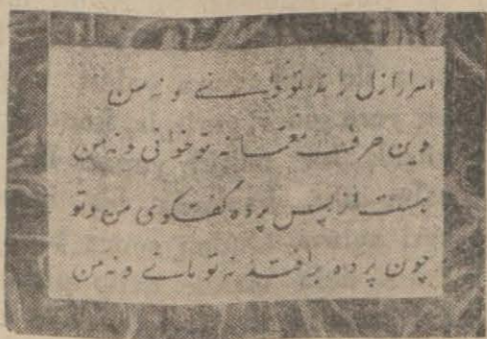 اسرار ازل را نه تو دانی و نه من
وین حرف معما نه تو خوانی و نه من
هست از پس پرده گفتگوی من و تو
چون پرده برافتد نه تو مانی و نه من